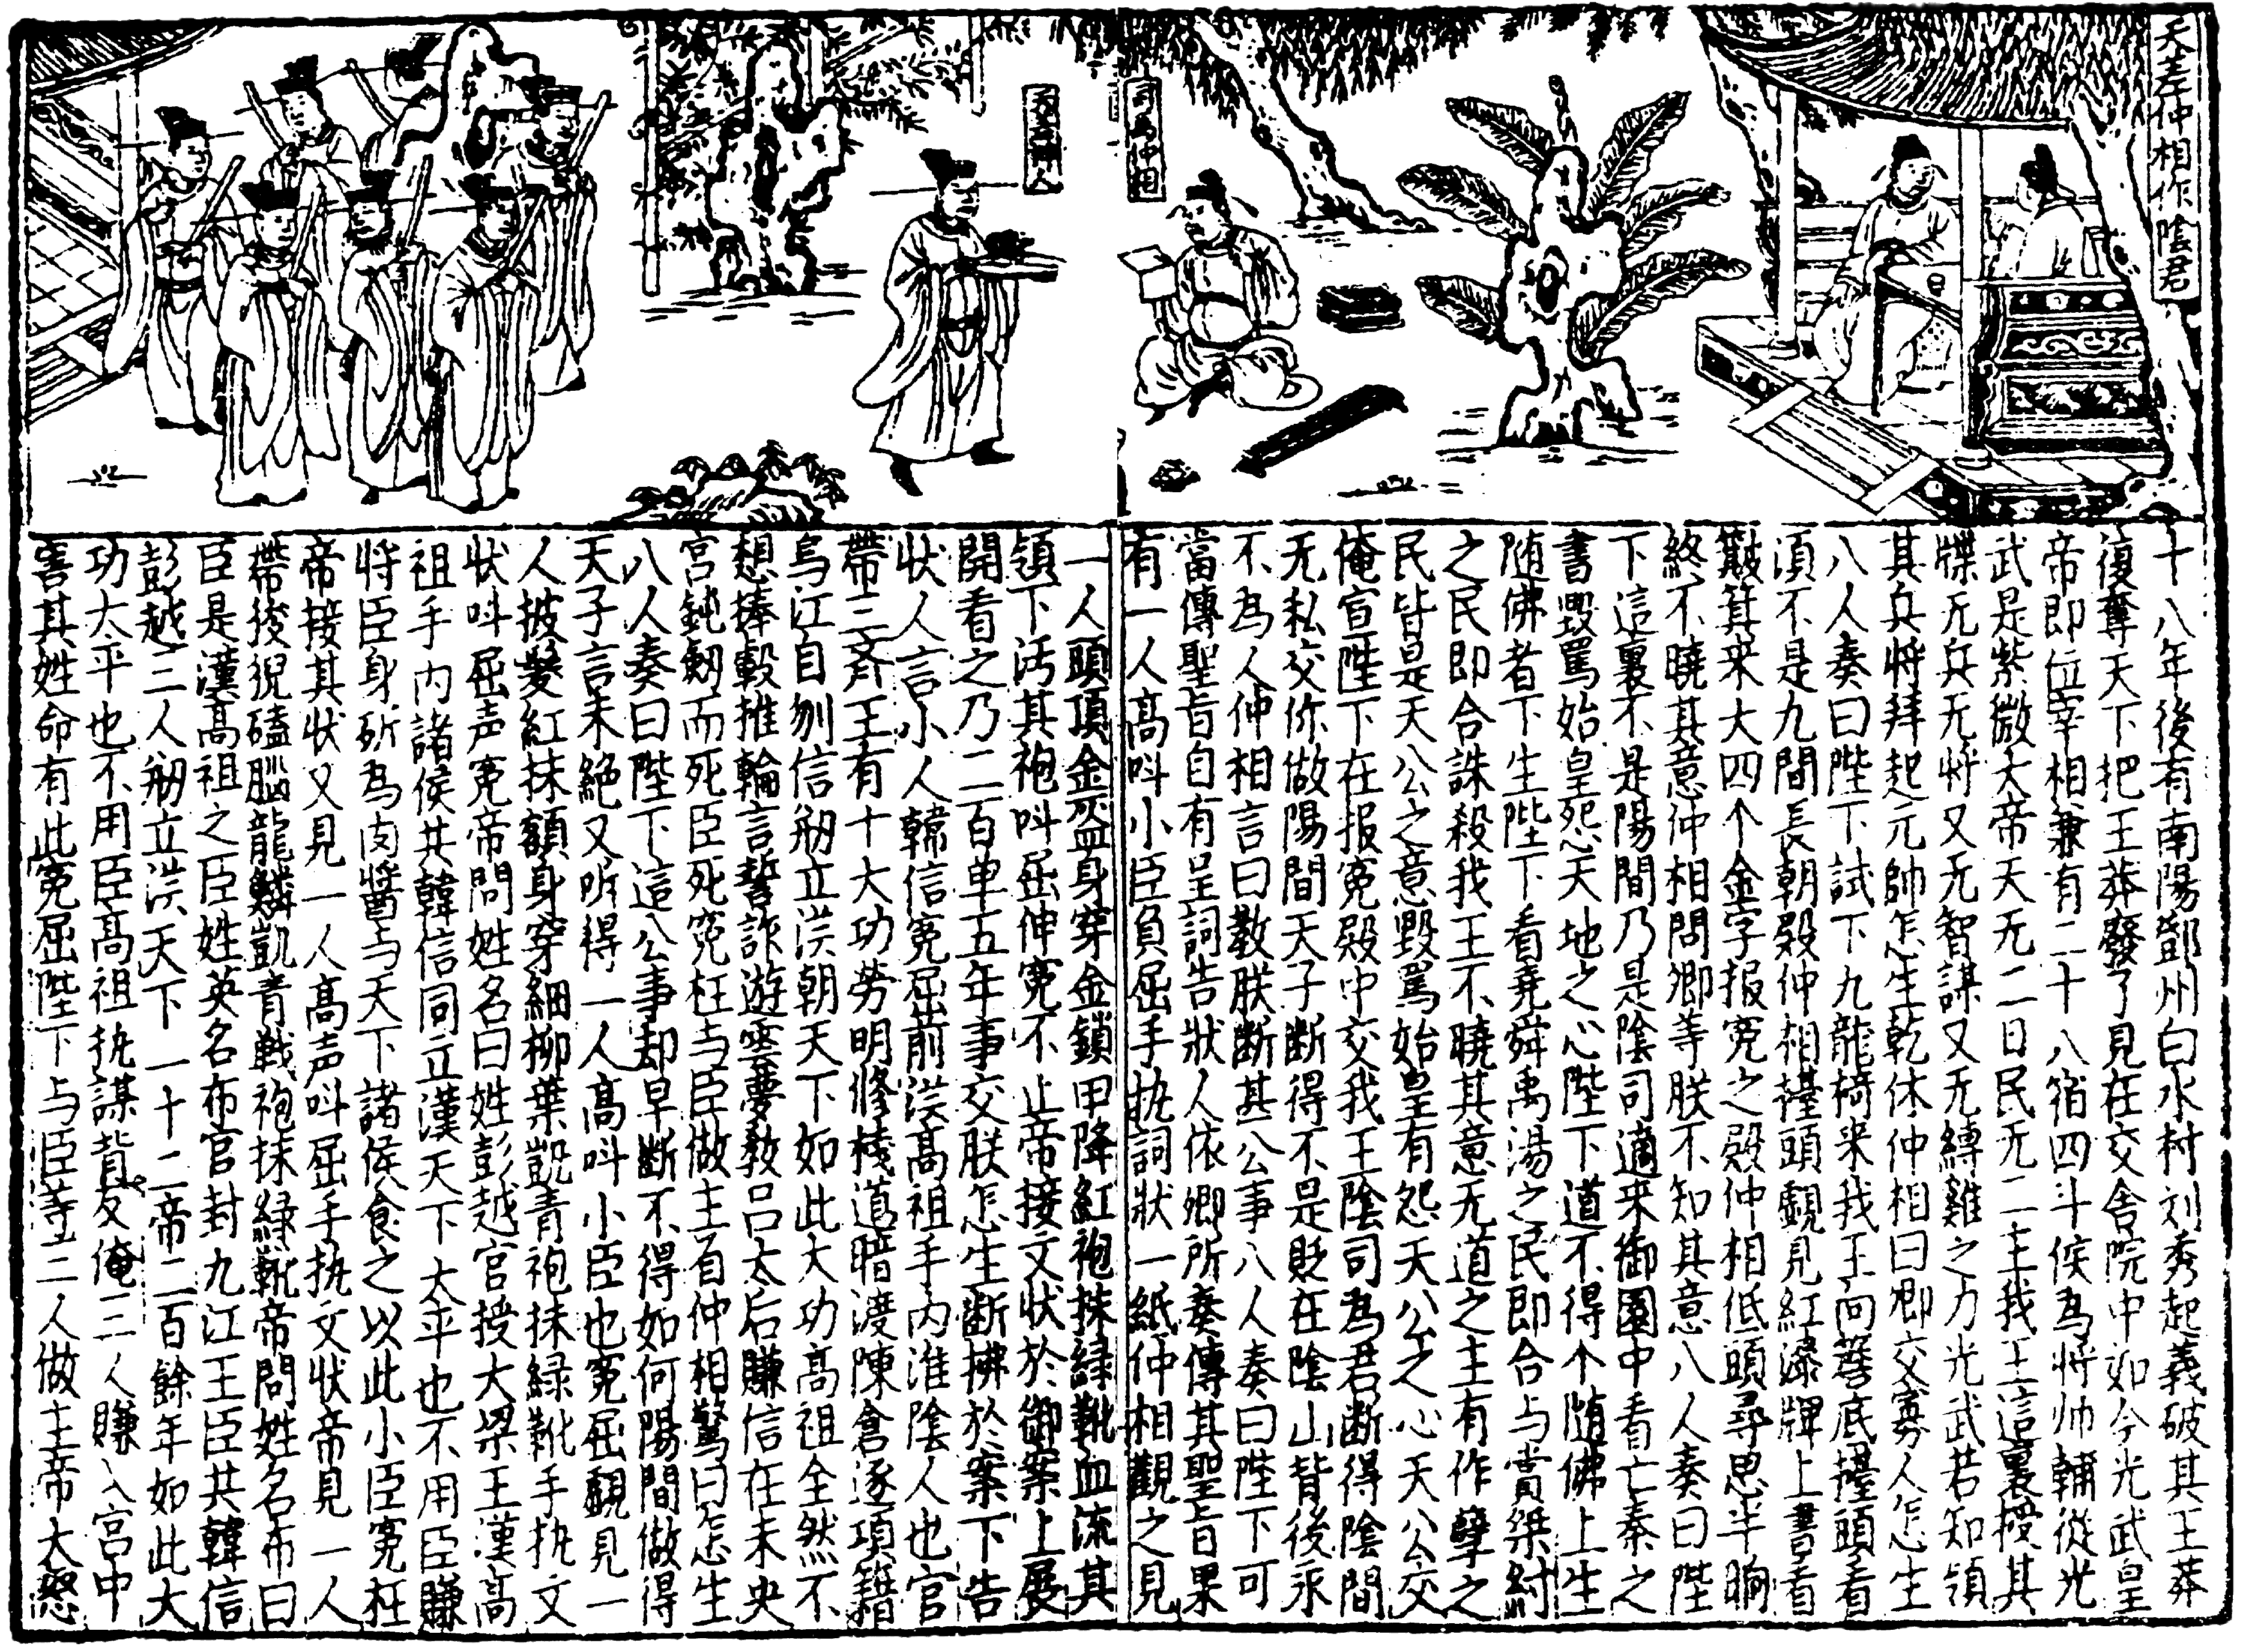 天差仲相作陰君
司馬仲相
天差八人
十八年後有南陽鄧州白水村刘秀起義破其王莽
復奪天下把王莽廢了見在交舍院中如今光武皇
帝即位宰相兼有二十八宿四斗侯為將帅輔從光
武是紫微大帝天无二日民无二主我王這裏授其
牒无兵无将又无智謀又无縛雞之力光武若知領
其兵将拜起元帥怎生乾休仲相曰卿交寡人怎生
八人奏曰陛下試下九龍椅来我王向簷底擡頭看
湏不是九間長朝殿仲相擡頭覷見紅漆牌上書着
簸箕来大四个金字报寃之殿仲相低頭尋思半晌
終不曉其意仲相問卿等朕不知其意八人奏曰陛
下這裏不是陽間乃是陰司適来御園中看亡秦之
書毀罵始皇怨天地之心陛下道不得个随佛上生
随佛者下生陛下看堯舜禹湯之民即合与賞桀紂
之民即合誅殺我王不曉其意无道之主有作孽之
民皆是天公之意毀罵始皇有怨天公之心天公交
俺宣陛下在报寃殿中交我王陰司為君断得陰間
无私交你做陽間天子断得不是貶在陰山背後永
不為人仲相言曰教朕断甚公事八人奏曰陛下可
當傳聖旨自有呈詞告狀人依卿所奏傳其聖旨果
有一人高呌小臣負屈手执詞狀一紙仲相觀之見
一人頭頂金盔身穿金鎖甲降紅袍抹緑靴血流其
領下汚其袍呌屈伸寃不止帝接文状於御案上展
開看之乃二百单五年事交朕怎生断拂於案下告
状人言小人韓信寃屈前漢高祖手内淮陰人也官
帶三齐王有十大功劳明修棧道暗渡陳倉逐項籍
烏江自刎信剏立漢朝天下如此大功高祖全然不
想捧轂推輪言誓詐遊雲夢教吕太后賺信在未央
宫鈍劒而死臣死寃枉与臣做主者仲相驚曰怎生
八人奏曰陛下這公事却早断不得如何陽間做得
天子言未絶又听得一人高呌小臣也寃屈覷見一
人披髮紅抹額身穿細柳葉凱青袍抹緑靴手执文
状呌屈声寃帝問姓名曰姓彭越官授大梁王漢高
祖手内諸侯共韓信同立漢天下太平也不用臣賺
将臣身斫為肉醬与天下諸侯食之以此小臣寃枉
帝接其状又見一人高声呌屈手执文状帝見一人
帶狻猊磕腦龍鱗凱青戰袍抹緑靴帝問姓名布曰
臣是漢高祖之臣姓英名布官封九江王臣共韓信
彭越三人剏立漢天下一十二帝二百餘年如此大
功太平也不用臣高祖执謀背反俺三人賺入宫中
害其姓命有此寃屈陛下与臣等三人做主帝大怒